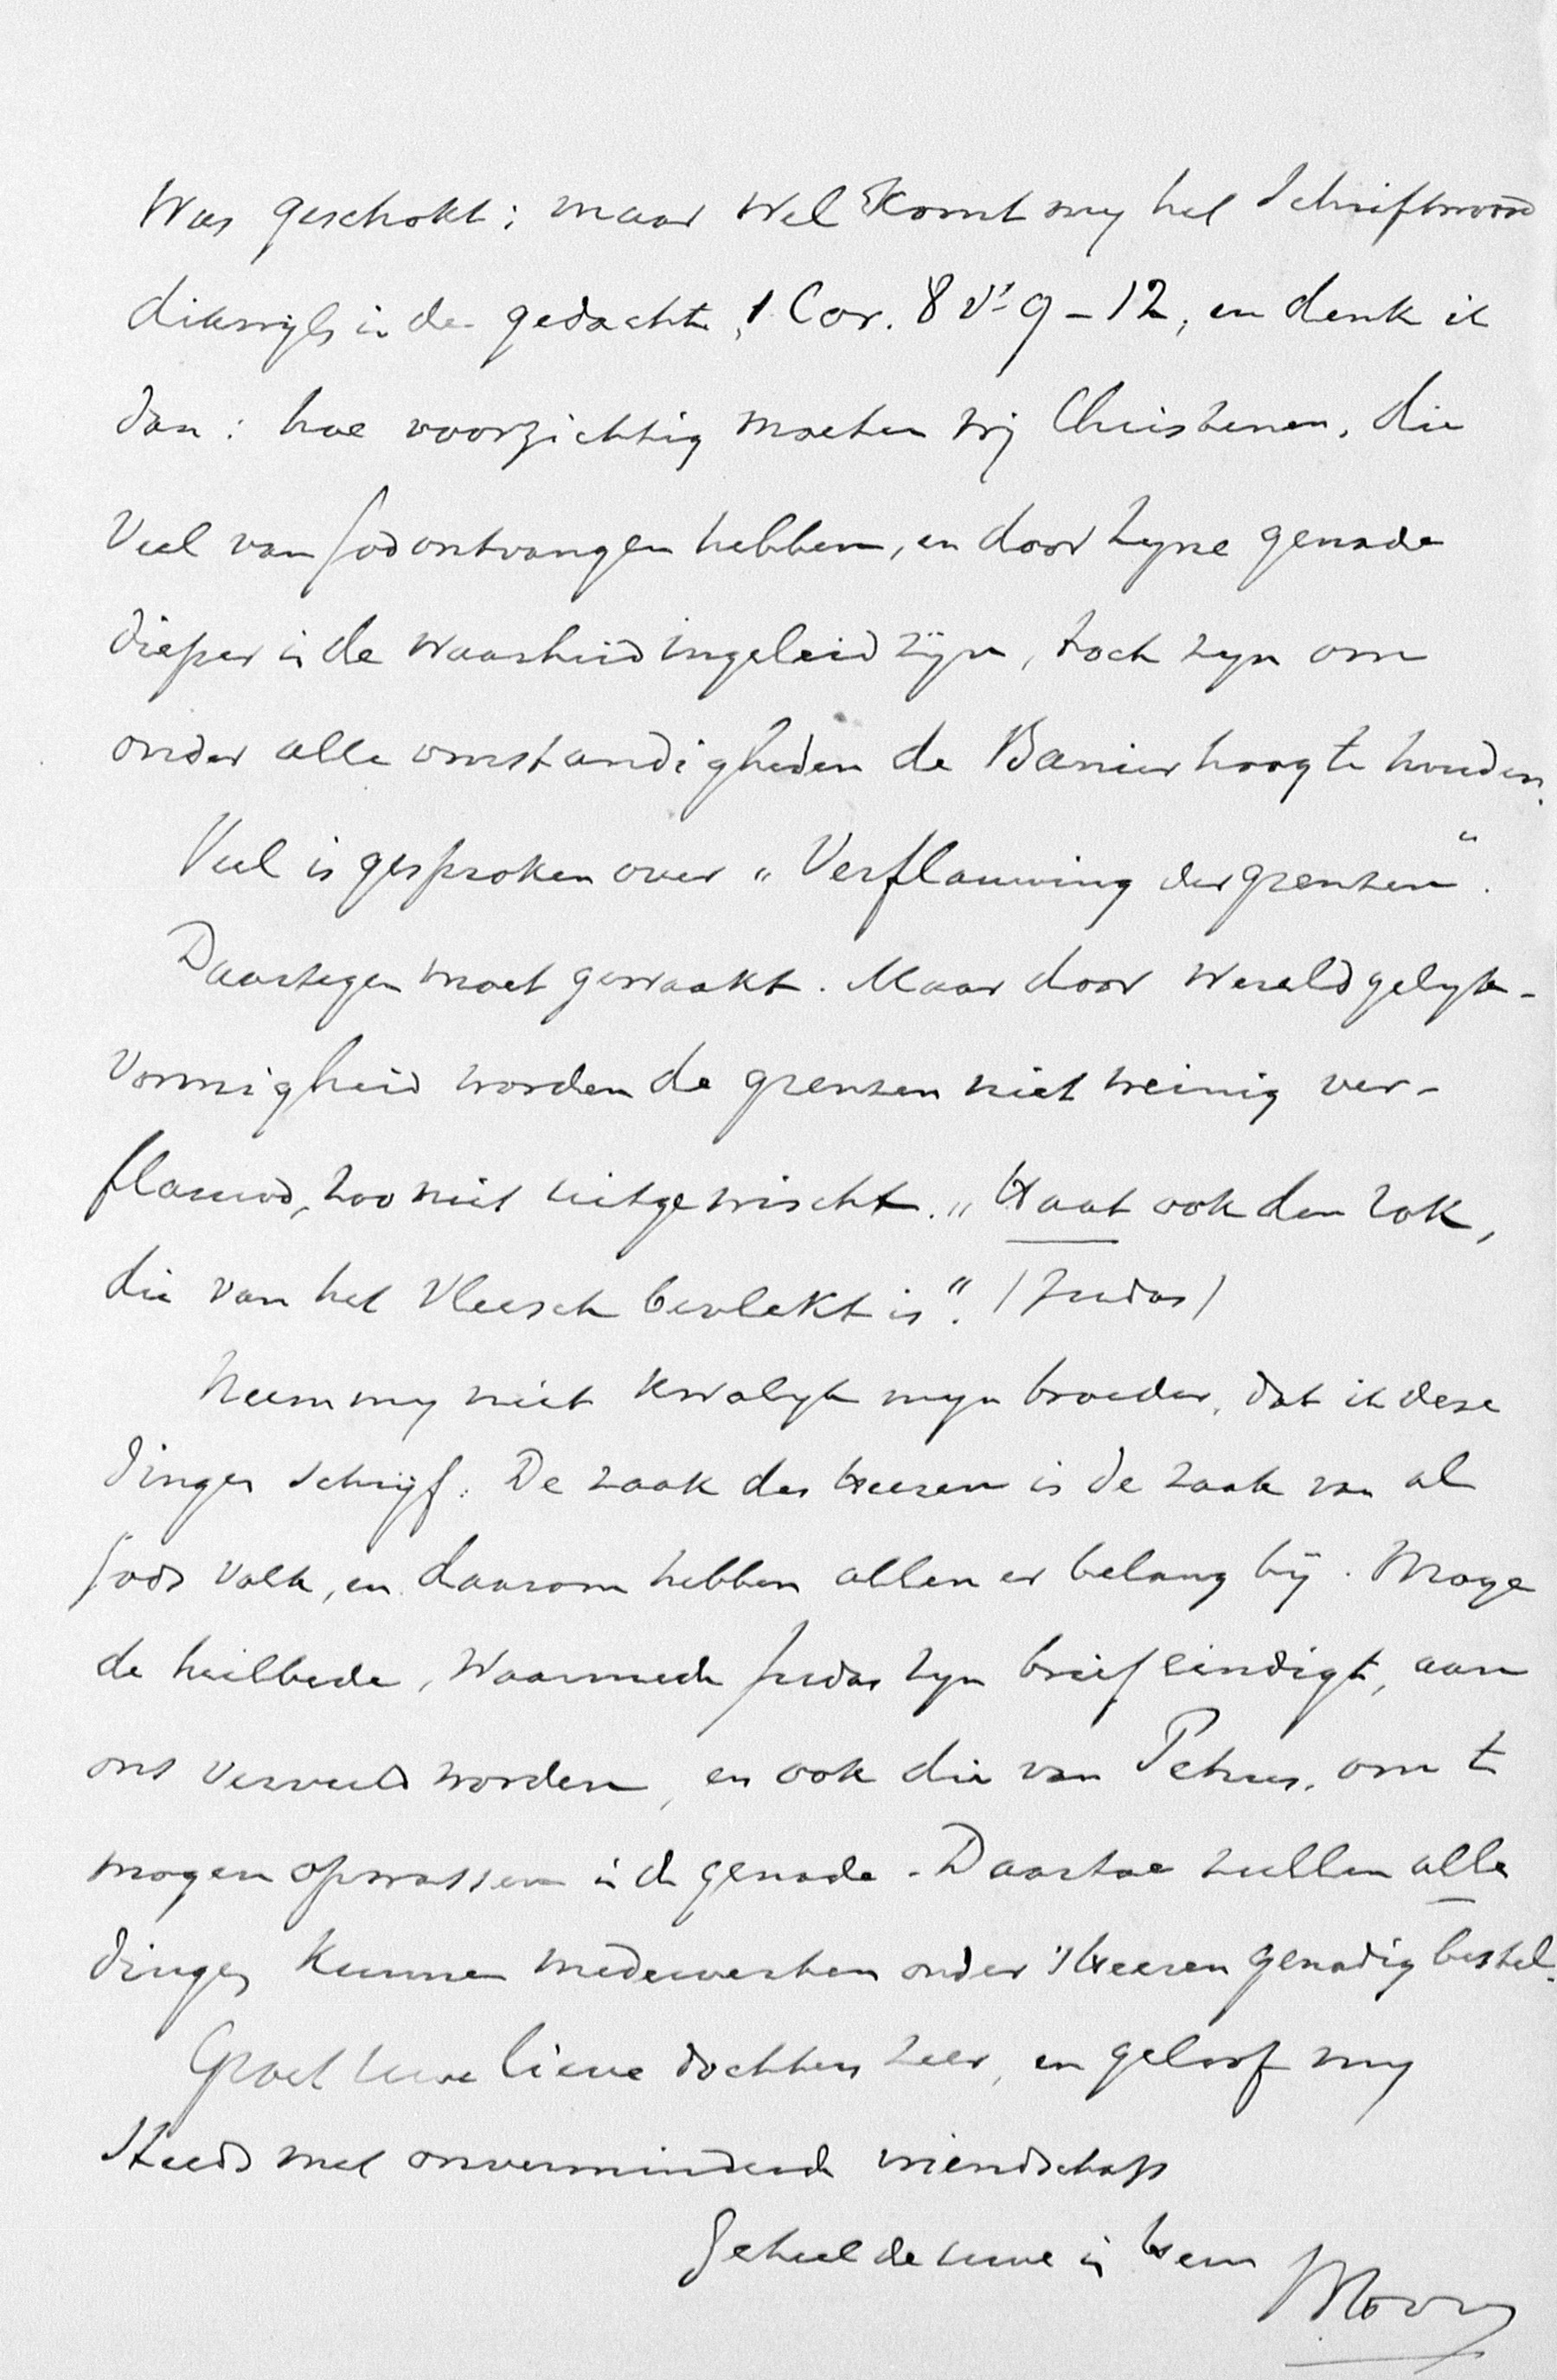 Was geschokt; maar wel komt my het Schriftwoord
dikwyls in de gedachte, 1 Cor. 8 vs 9-12, en denk ik
dan: hoe voorzichtig moeten wij Christenen, die
veel van God ontvangen hebben, en door Zyne genade
dieper in de waarheid ingeleid zijn, toch zyn om
onder alle omstandigheden de Banier hoog te houden.
Veel is gesproken over „Verflauwing der grenzen“.
Daartegen moet gewaakt. Maar door wereldgelyk-
vormigheid worden de grenzen niet weinig ver-
flauwd, zoo niet uitgewischt. „Haat ook den rok,
die van het vleesch bevlekt is“. (Judas)
Neem my niet kwalyk myn broeder, dat ik deze
dingen schrijf. De zaak des Heeren is de zaak van al
Gods volk, en daarom hebben allen er belang bij. Moge
de heilbede, waarmede Judas zyn brief eindigt, aan
ons vervuld worden, en ook die van Petrus, om te
mogen opwassen in de genade. Daartoe zullen alle
dingen kunnen medewerken onder 's Heeren genadig bestel.
Groet uwe lieve dochters zeer, en geloof my
steeds met onverminderde vriendschap
Geheel de uwe in Hem